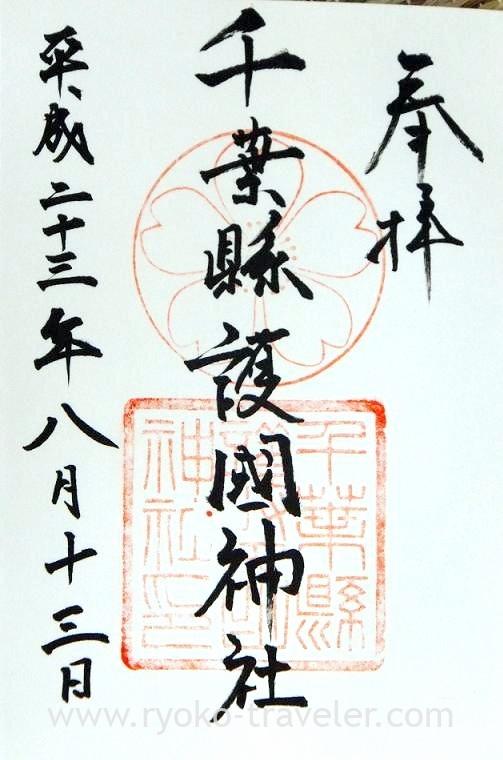 奉拝
千葉縣護國神社
平成二十三年八月十三日
千葉縣
護國
神社印
www.ryoko-traveler.com